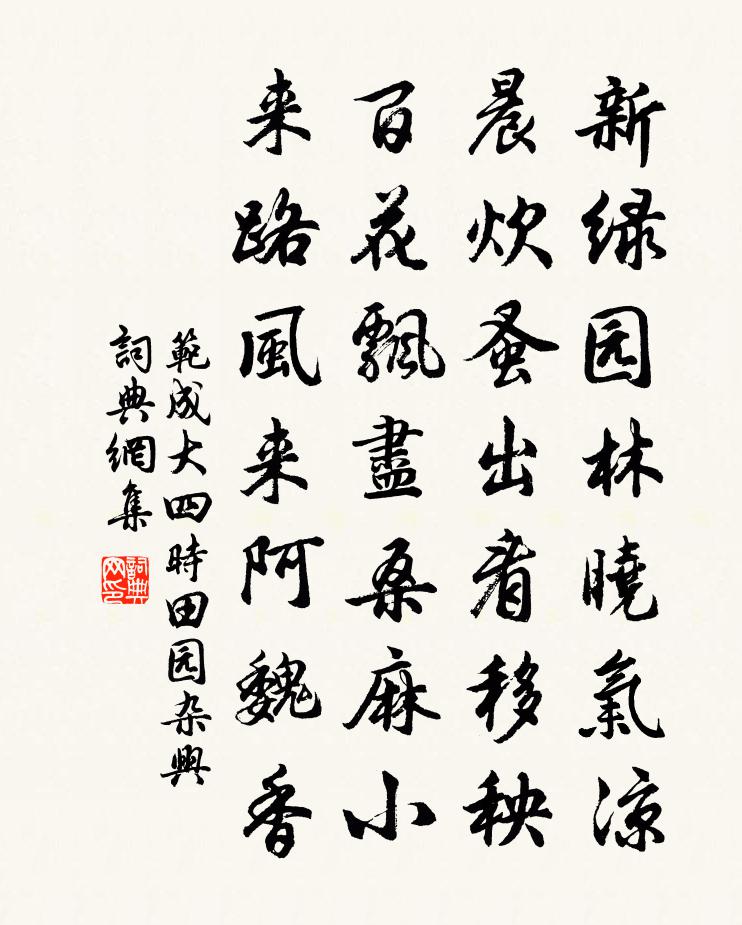 新绿园林曉氣凉
晨炊蚤出看移秧
百花飄盡桑麻小
来路風来阿魏香
範成大四時田园杂興
詞典網集
詞典网印